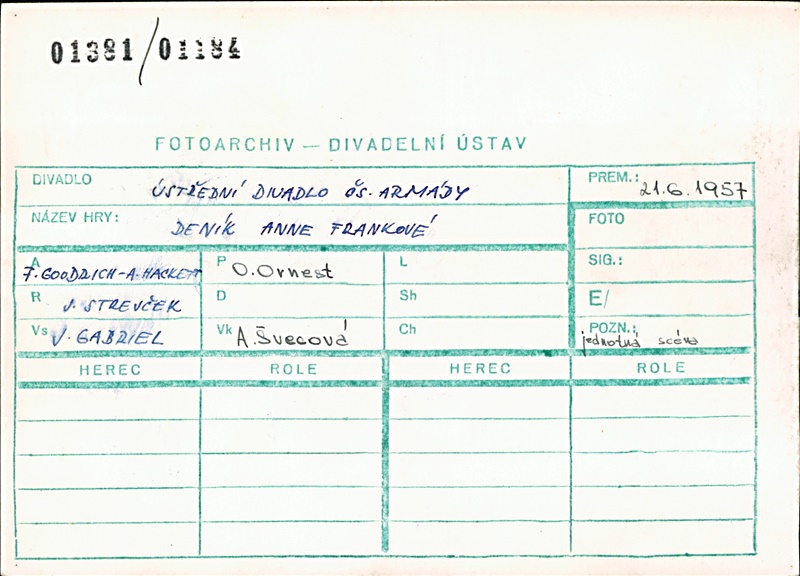 01381/01184
FOTOARCHIV — DIVADELNÍ ÚSTAV
DIVADLO ÚSTŘEDNÍ DIVADLO ČS. ARMÁDY
PREM.: 21.6.1957
NÁZEV HRY: DENÍK ANNE FRANKOVÉ
FOTO
A F. GOODRICH-A. HACKETT
P O. Ornest
L
SIG.:
R J. STREJČEK
D
Sh
E/
Vs J. GABRIEL
Vk A. Švecová
Ch
POZN.: jednotná scéna
HEREC ROLE HEREC ROLE